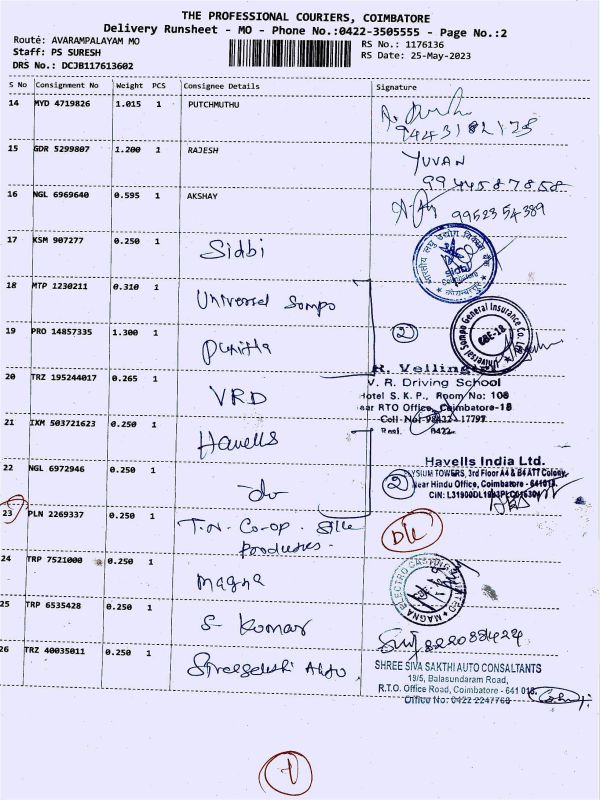 THE PROFESSIONAL COURIERS, COIMBATORE
Delivery Runsheet - MO - Phone No.:0422-3505555 - Page No.:2
Route: AVARAMPALAYAM MO
Staff: PS SURESH
DRS No.: DCJB117613602
RS No.: 1176136
RS Date: 25-May-2023
S No Consignment No Weight PCS Consignee Details Signature
14 MYD 4719826 1.015 1 PUTCHMUTHU
15 GDR 5299807 1.200 1 RAJESH YUVAN
9944587858
16 NGL 6969640 0.595 1 AKSHAY
9952354389
17 KSM 907277 0.250 1 Sidbi
sidbi
18 MTP 1230211 0.310 1 Universal Sompo
Universal Sompo General Insurance Co. Ltd.
CBE-18
2
19 PRO 14857335 1.300 1 Punitha
20 TRZ 195244017 0.265 1 VRD
R. Vellingiri
V. R. Driving School
Hotel S. K. P., Room No: 108
near RTO Office, Coimbatore-18
Cell No 98432-17797
Resi. 0422
21 IXM 503721623 0.250 1 Havells
Havells India Ltd.
ELYSIUM TOWERS, 3rd Floor A4 & B4 ATT Colony
Near Hindu Office, Coimbatore - 641018.
22 NGL 6972946 0.250 1 do
2
23 PLN 2269337 0.250 1 T.N. Co-op. Silk
Producers.
D/L
24 TRP 7521000 0.250 1 Magna
MAGNA ELECTRO CASTINGS LIMITED
25 TRP 6535428 0.250 1 S Kumar
26 TRZ 40035011 0.250 1
SHREE SIVA SAKTHI AUTO CONSALTANTS
19/5, Balasundaram Road,
R.T.O. Office Road, Coimbatore - 641 018.
Office No: 0422 2247768